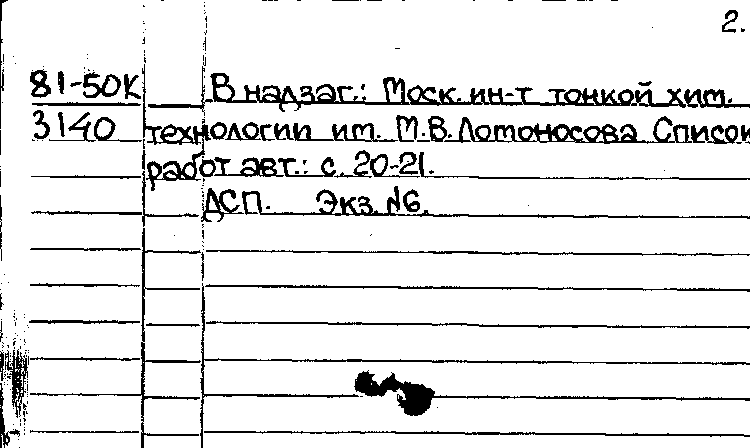 2.
81-50К В надзаг.: Моск. ин-т тонкой хим.
3140 технологии им. М.В. Ломоносова Список
работ авт.: с. 20-21.
ДСП. Экз. №6.